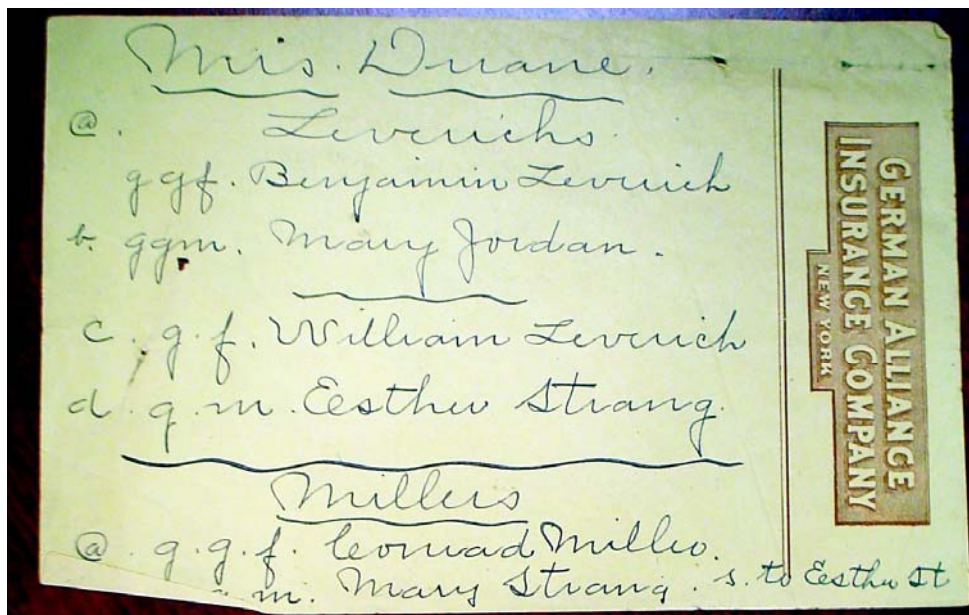 Mrs. Duane.
@. Leverichs.
g g f. Benjamin Leverich
b. g g m. Mary Jordan.
c. g. f. William Leverich
d. g. m. Eesther Strang.
Millers
@. g. g. f. Conrad Miller.
m. Mary Strang. s. to Eesther St
GERMAN ALLIANCE
INSURANCE COMPANY
NEW YORK